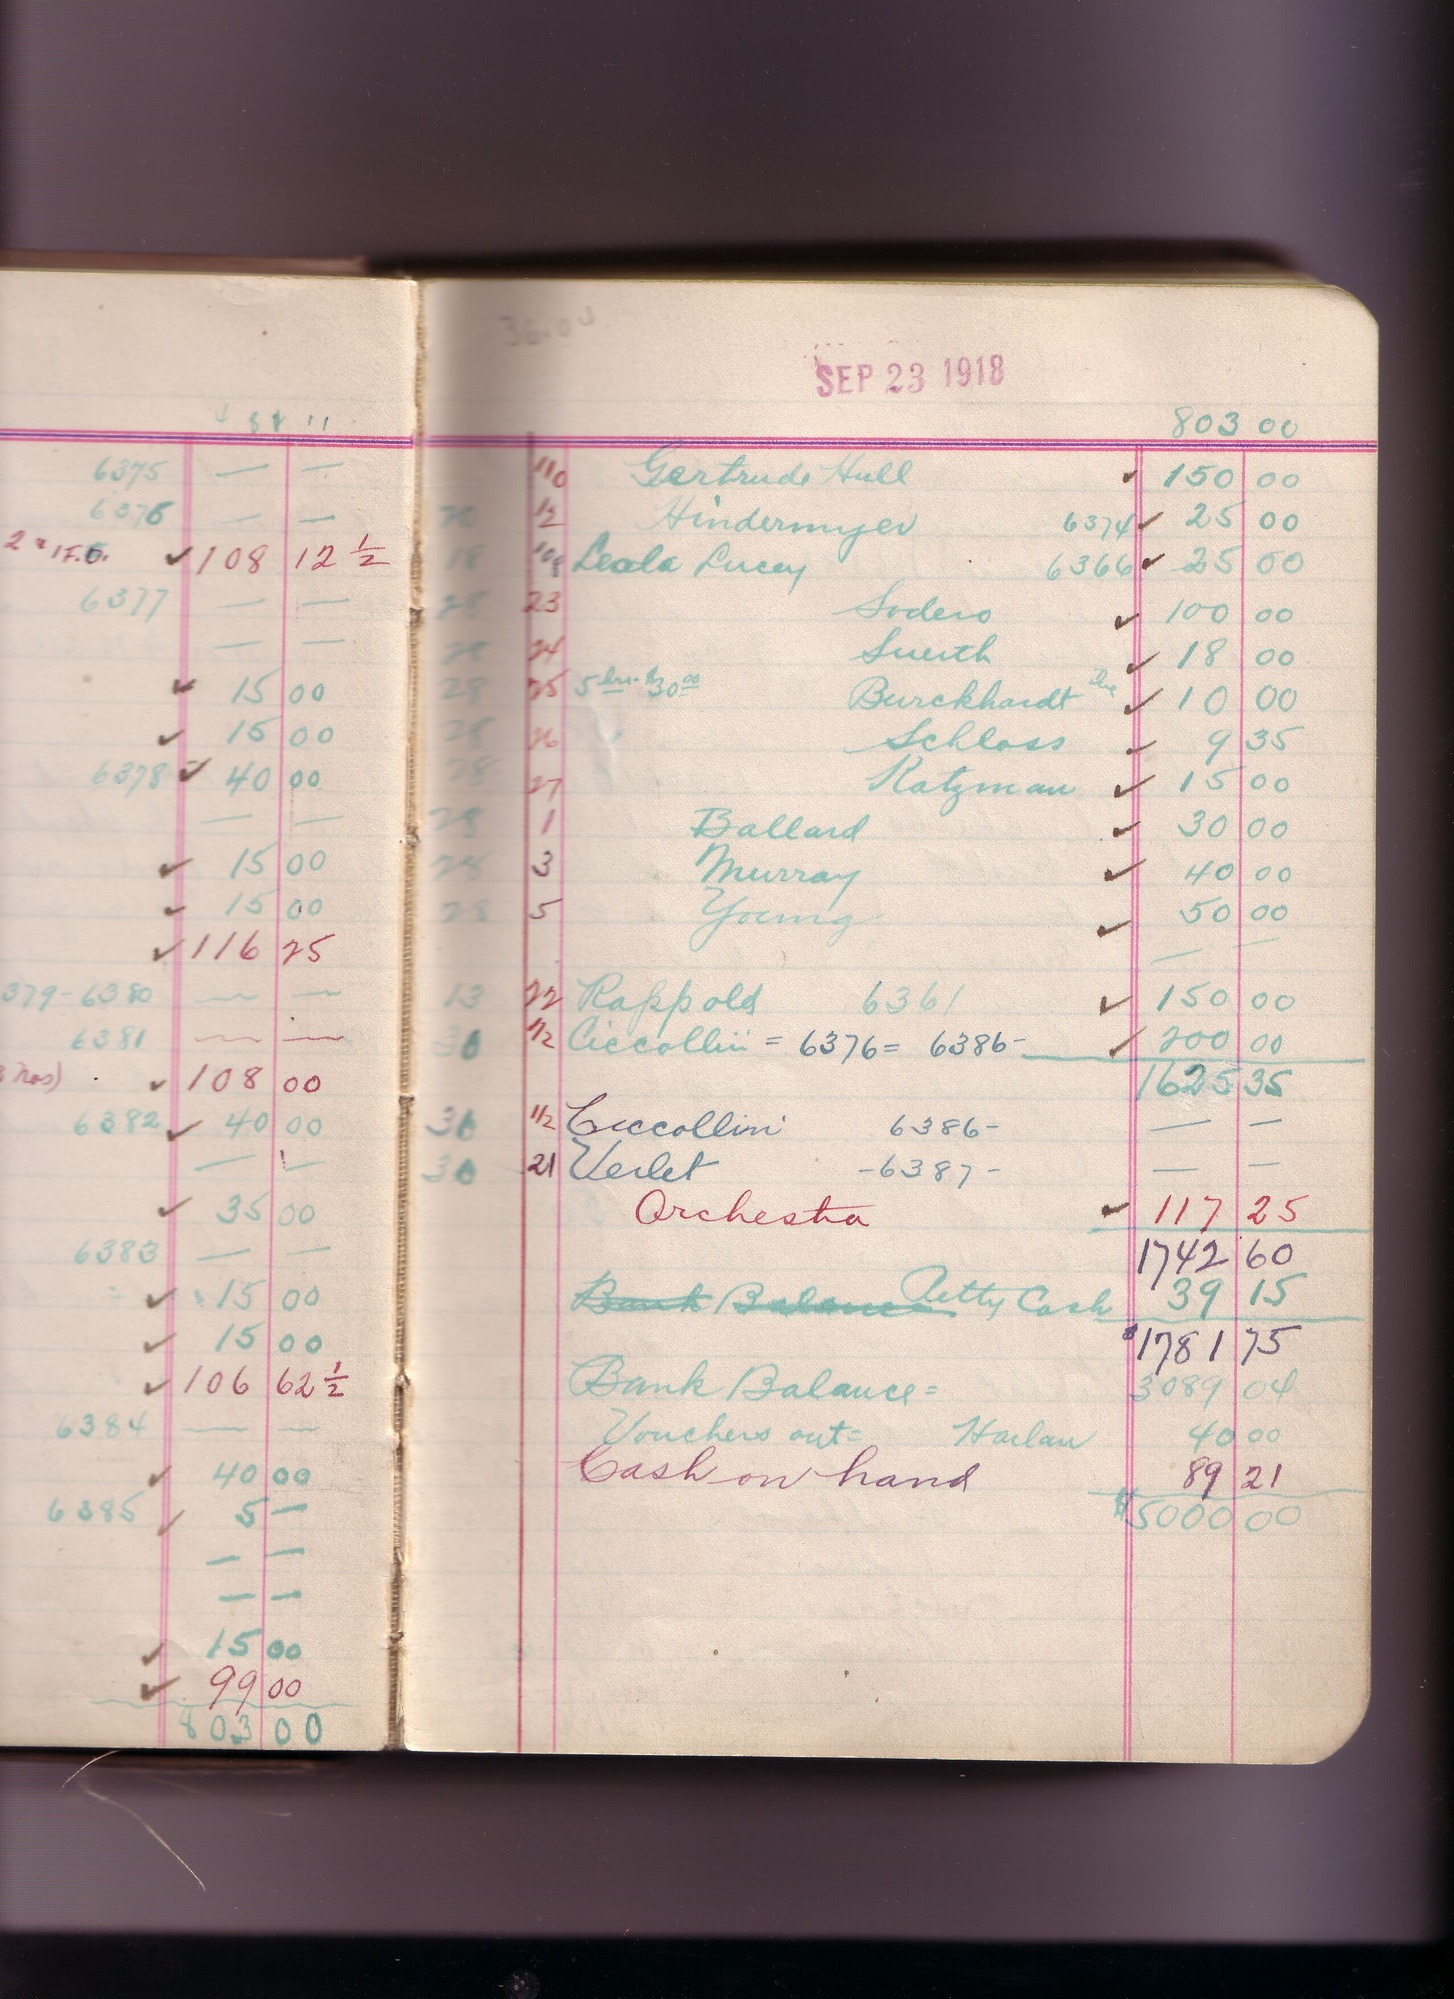 6375 — —
6376 — —
2 & 1 F.O. ✓ 108 12 ½
6377 — —
— —
✓ 15 00
✓ 15 00
6378 ✓ 40 00
— —
✓ 15 00
✓ 15 00
✓ 116 25
379-6380 — —
6381 — —
✓ 108 00
6382 ✓ 40 00
— —
✓ 35 00
6383 — —
✓ 15 00
✓ 15 00
✓ 106 62 ½
6384 — —
✓ 40 00
6385 ✓ 5 —
— —
— —
✓ 15 00
✓ 99 00
803 00
SEP 23 1918
803 00
110 Gertrude Hull ✓ 150 00
1/2 Hindermyer 6374 ✓ 25 00
18 108 Leola Lucey 6366 ✓ 25 00
28 23 Sodero ✓ 100 00
28 24 Smith ✓ 18 00
28 25 5 hrs. $30 00 Burckhardt ✓ 10 00
28 26 Schloss ✓ 9 35
28 27 Katzman ✓ 15 00
28 1 Ballard ✓ 30 00
28 3 Murray ✓ 40 00
28 5 Young ✓ 50 00
— —
13 22 Rappold 6361 ✓ 150 00
30 1/2 Ciccolini = 6376 = 6386- ✓ 200 00
1625 35
30 1/2 Ciccolini 6386- — —
30 21 Verlet -6387- — —
Orchestra ✓ 117 25
1742 60
Bank Balance Petty Cash 39 15
$1781 75
Bank Balance = 3089 04
Vouchers out = Harlan 40 00
Cash on hand 89 21
$5000 00